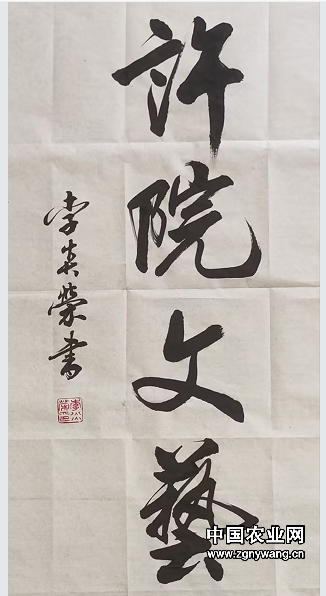 許院文藝
李榮書
中国农业网
www.zgnywang.cn